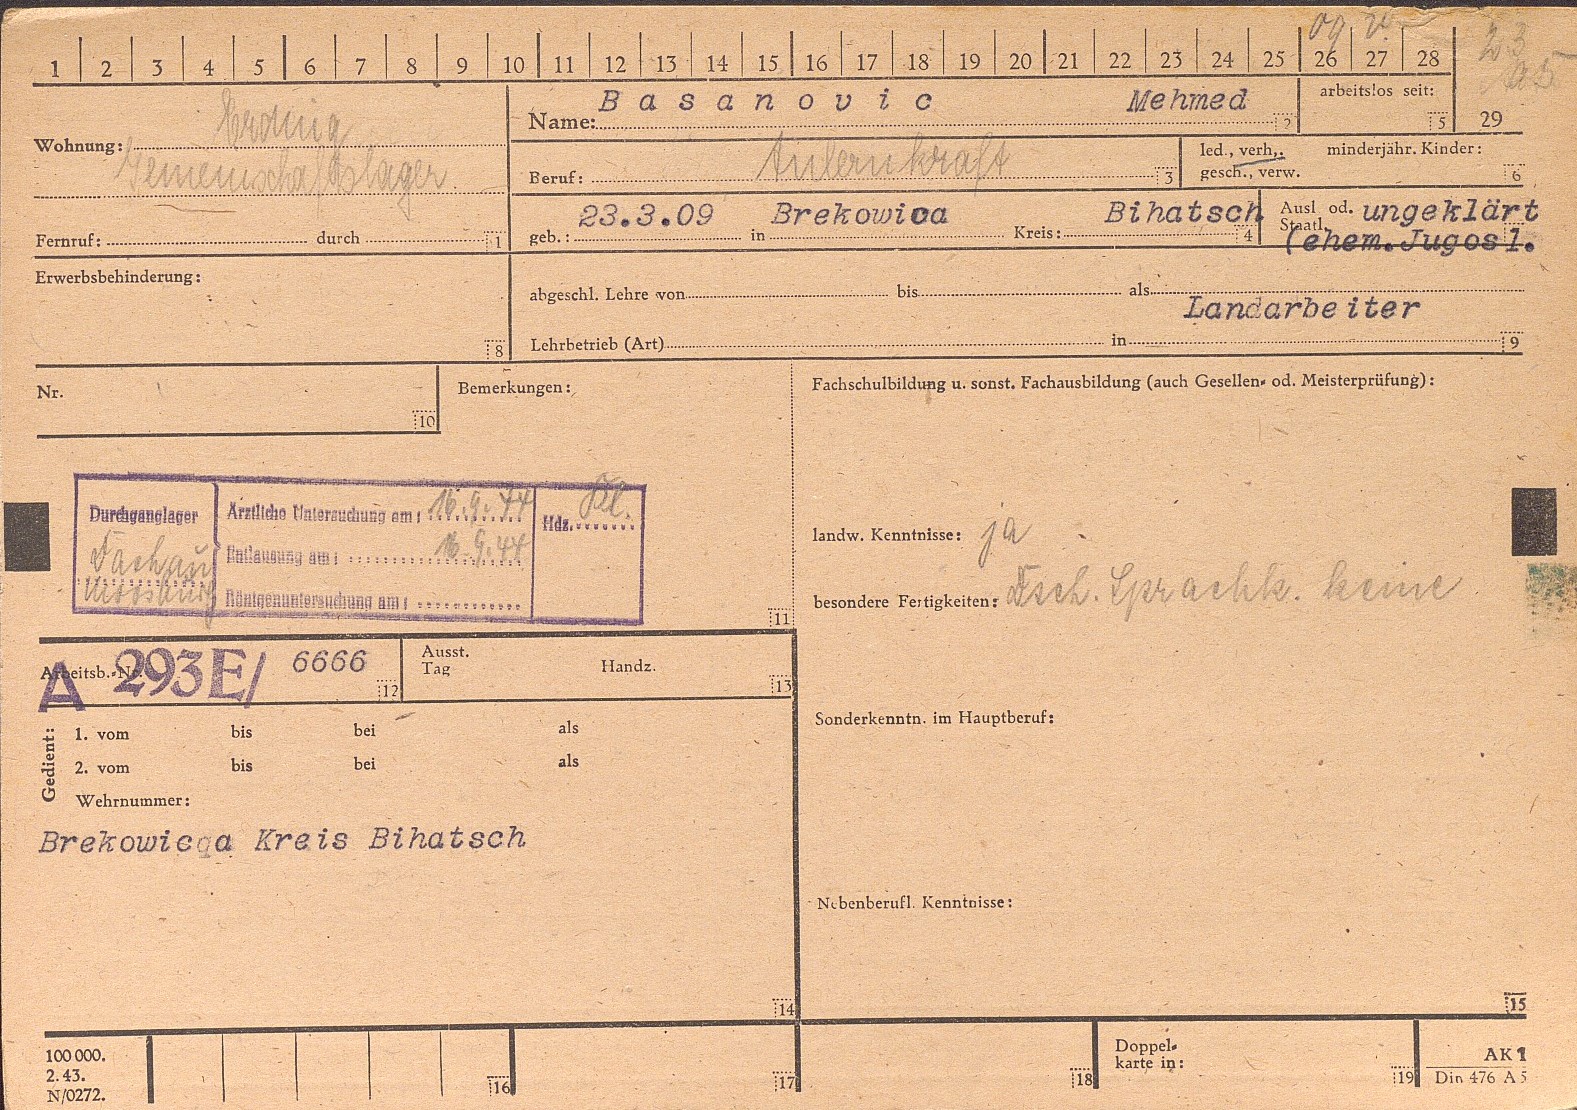 09 v. 23
a5
1 2 3 4 5 6 7 8 9 10 11 12 13 14 15 16 17 18 19 20 21 22 23 24 25 26 27 28
29
Wohnung: Erding
Gemeinschaftslager
Fernruf: durch 1
Name: Basanovic Mehmed 2
arbeitslos seit: 5
Beruf: 3
led., verh., minderjähr. Kinder:
gesch., verw. 6
geb.: 23.3.09 in Brekowica Kreis: Bihatsch 4
Ausl od. ungeklärt
Staatl. (ehem.Jugosl.
Erwerbsbehinderung: 8
abgeschl. Lehre von bis als
Landarbeiter
Lehrbetrieb (Art) in 9
Nr. 10
Bemerkungen:
Durchganglager
Dachau
Moosburg
Ärztliche Untersuchung am: 16.9.44
Entlausung am: 16.9.44
Röntgenuntersuchung am:
Hdz.
11
Fachschulbildung u. sonst. Fachausbildung (auch Gesellen- od. Meisterprüfung):
landw. Kenntnisse: ja
besondere Fertigkeiten: Dtsch. Sprachk. keine
Sonderkenntn. im Hauptberuf:
Nebenberufl. Kenntnisse:
15
Arbeitsb.-Nr. A 293E/ 6666 12
Ausst.
Tag Handz. 13
Gedient:
1. vom bis bei als
2. vom bis bei als
Wehrnummer:
Brekowicqa Kreis Bihatsch
14
100 000.
2. 43.
N/0272.
16
17
18
Doppel-
karte in: 19
AK 1
Din 476 A 5